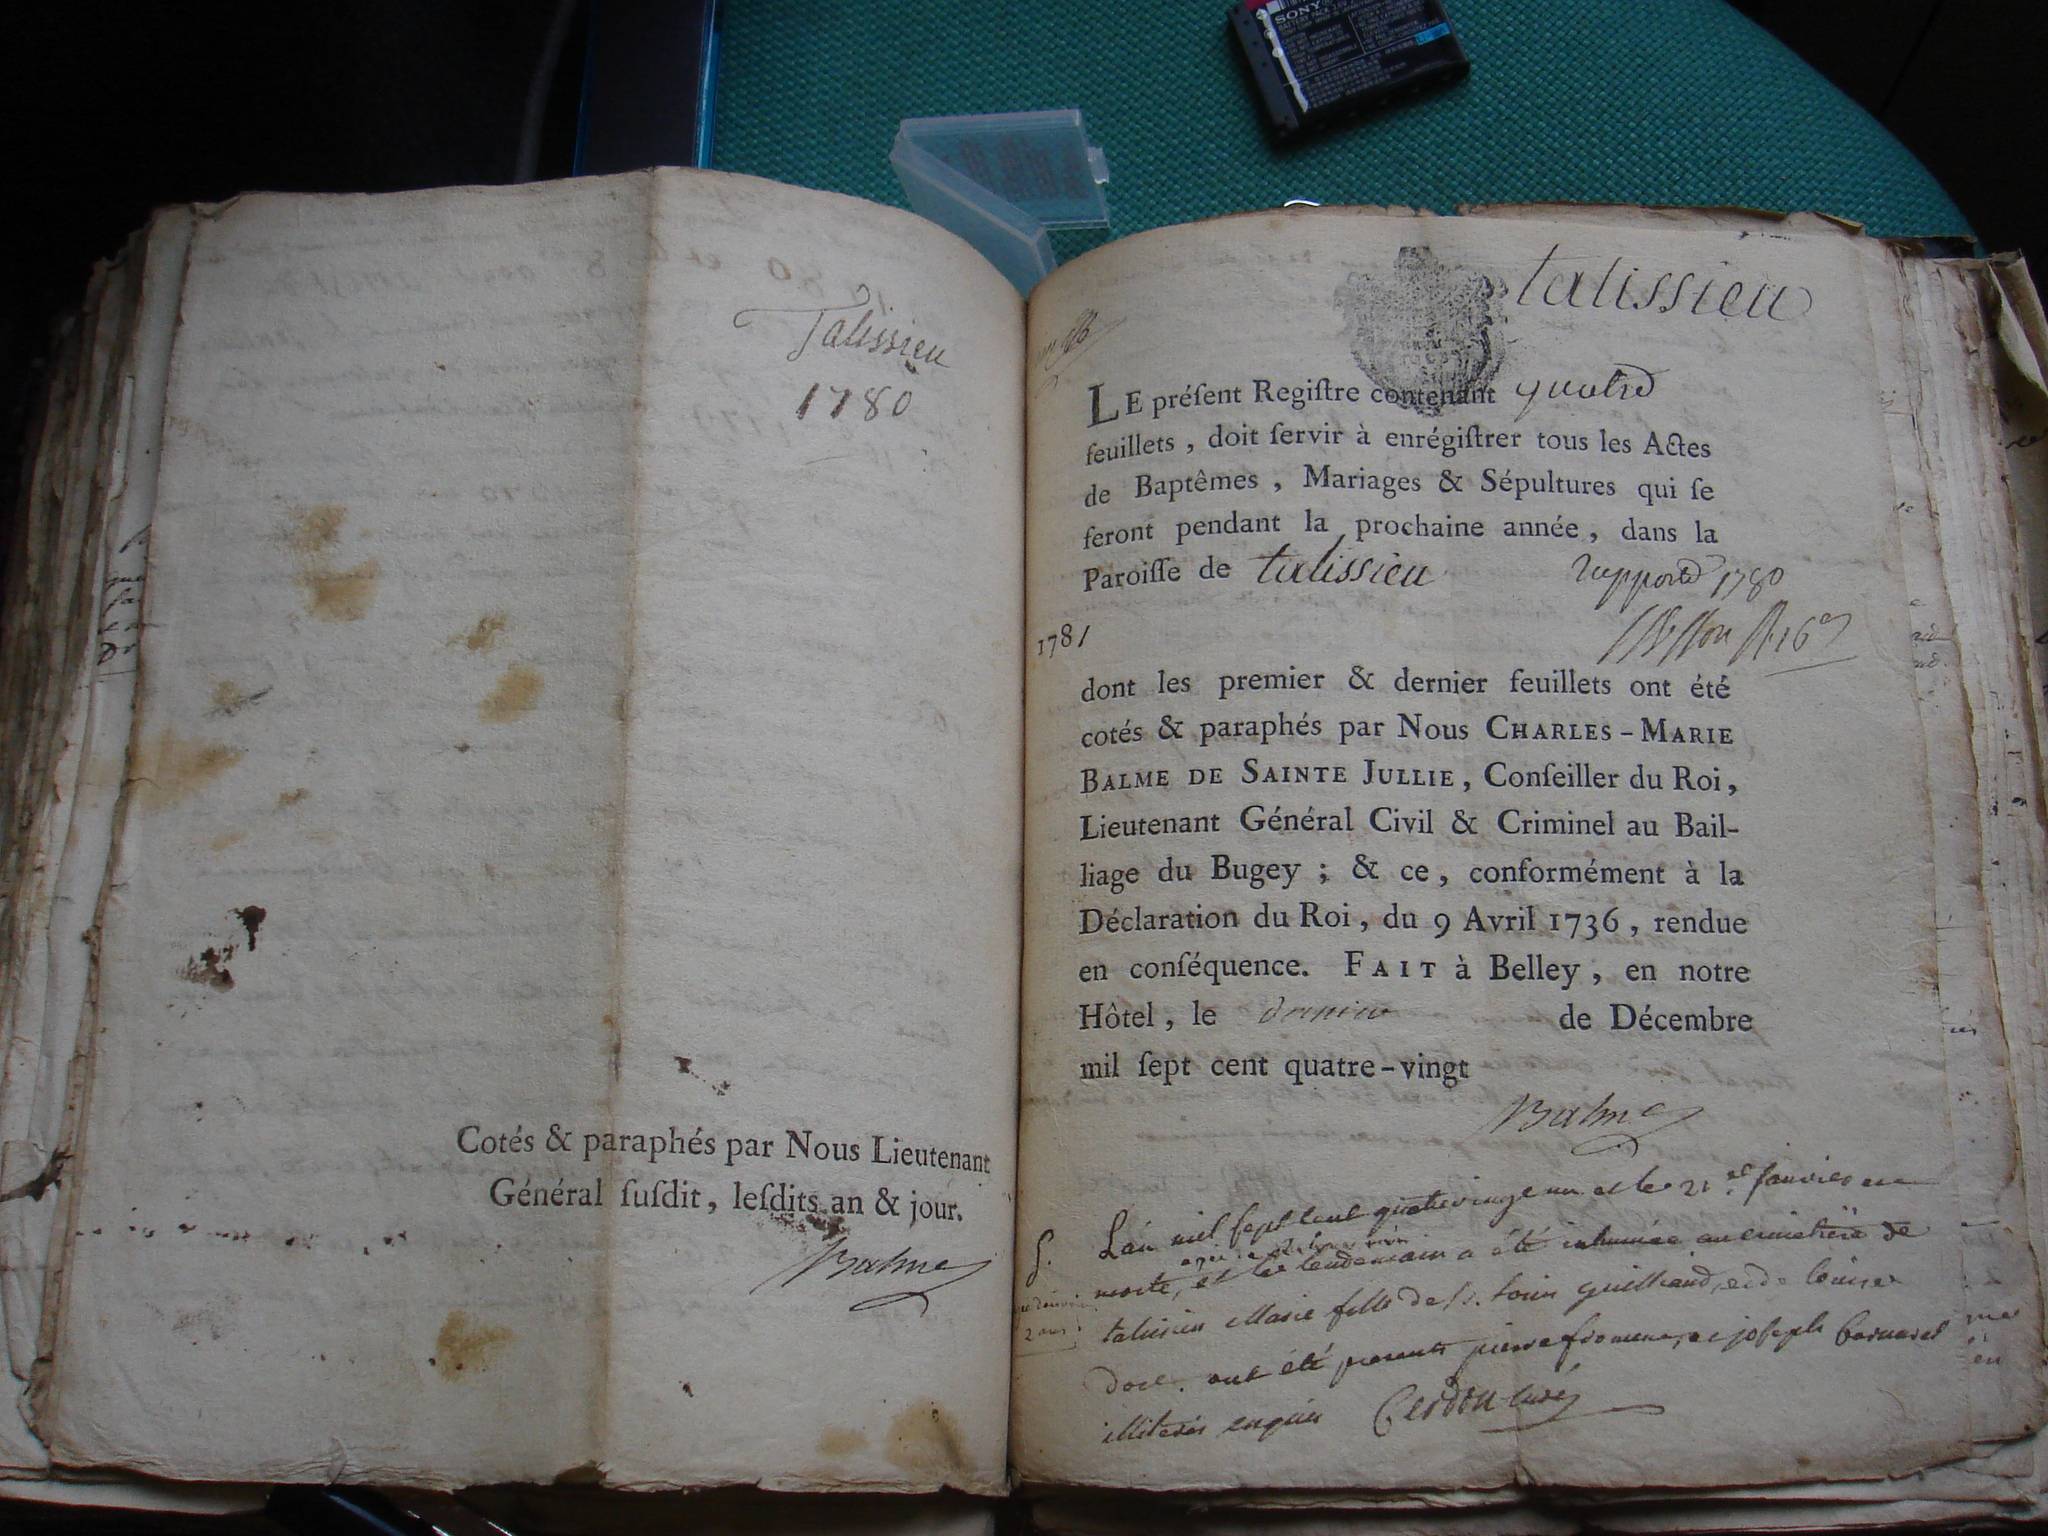 SONY
Talissieu
1780
Cotés & paraphés par Nous Lieutenant
Général ſuſdit, leſdits an & jour.
Balme
talissieu
LE préſent Regiſtre contenant quatre
feuillets, doit ſervir à enrégiſtrer tous les Actes
de Baptêmes, Mariages & Sépultures qui ſe
feront pendant la prochaine année, dans la
Paroiſſe de talissieu
Rapporté 1780
1781
dont les premier & dernier feuillets ont été
cotés & paraphés par Nous CHARLES-MARIE
BALME DE SAINTE JULLIE, Conſeiller du Roi,
Lieutenant Général Civil & Criminel au Bail-
liage du Bugey; & ce, conformément à la
Déclaration du Roi, du 9 Avril 1736, rendue
en conſéquence. FAIT à Belley, en notre
Hôtel, le dernier de Décembre
mil ſept cent quatre-vingt
Balme
S. L'an mil sept cent quatrevingt un et le 21 Janvier est
morte, et le lendemain a été inhumée au cimetière de
2 ans
talissieu Marie fille de Sr. Louis Guilland, et de Louise
ont été présents pierre froment, et joseph
illiterés enquis Cerdon curé